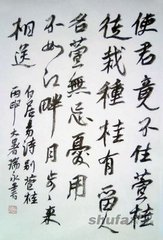 使君竟不住萱桂
徒栽種桂有留人
名萱無忘憂用
不如江畔月步々来
相送 白居易诗别萱桂
丙申大暑瑞
shufa